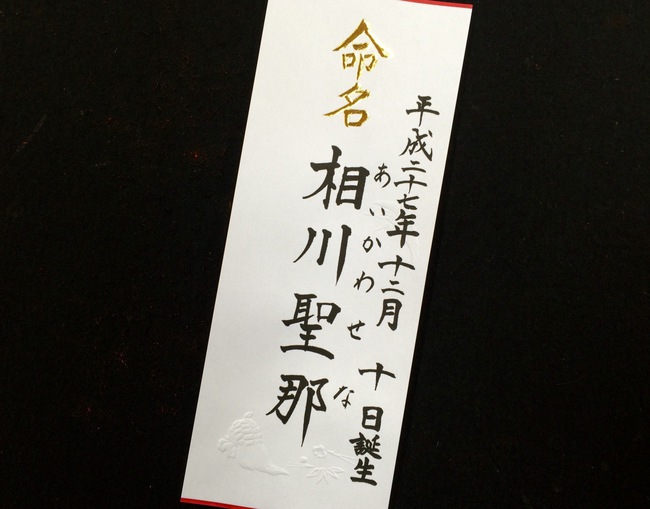 命名
平成二十七年十二月十日誕生
あいかわせな
相川聖那